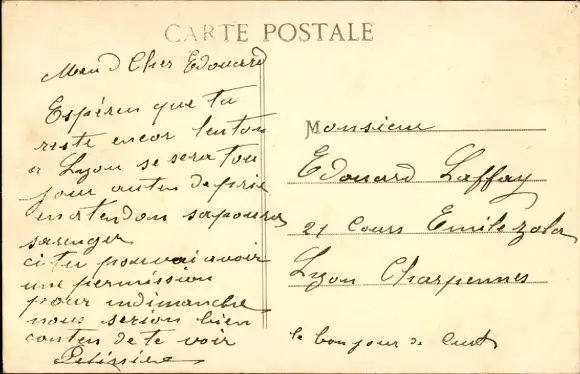 CARTE POSTALE
Mon Cher Edouard
Espéren que tu
reste encor lenton
a Lyon se sera tou
jour auten de pris
enatendon sapoura
saranger
ci tu pouvai avoir
une permission
pour undimanche
nous serion bien
conten de te voir
Pelissier
Monsieur
Edouard Laffay
21 Cours Emile zola
Lyon Charpennes
le bonjour de